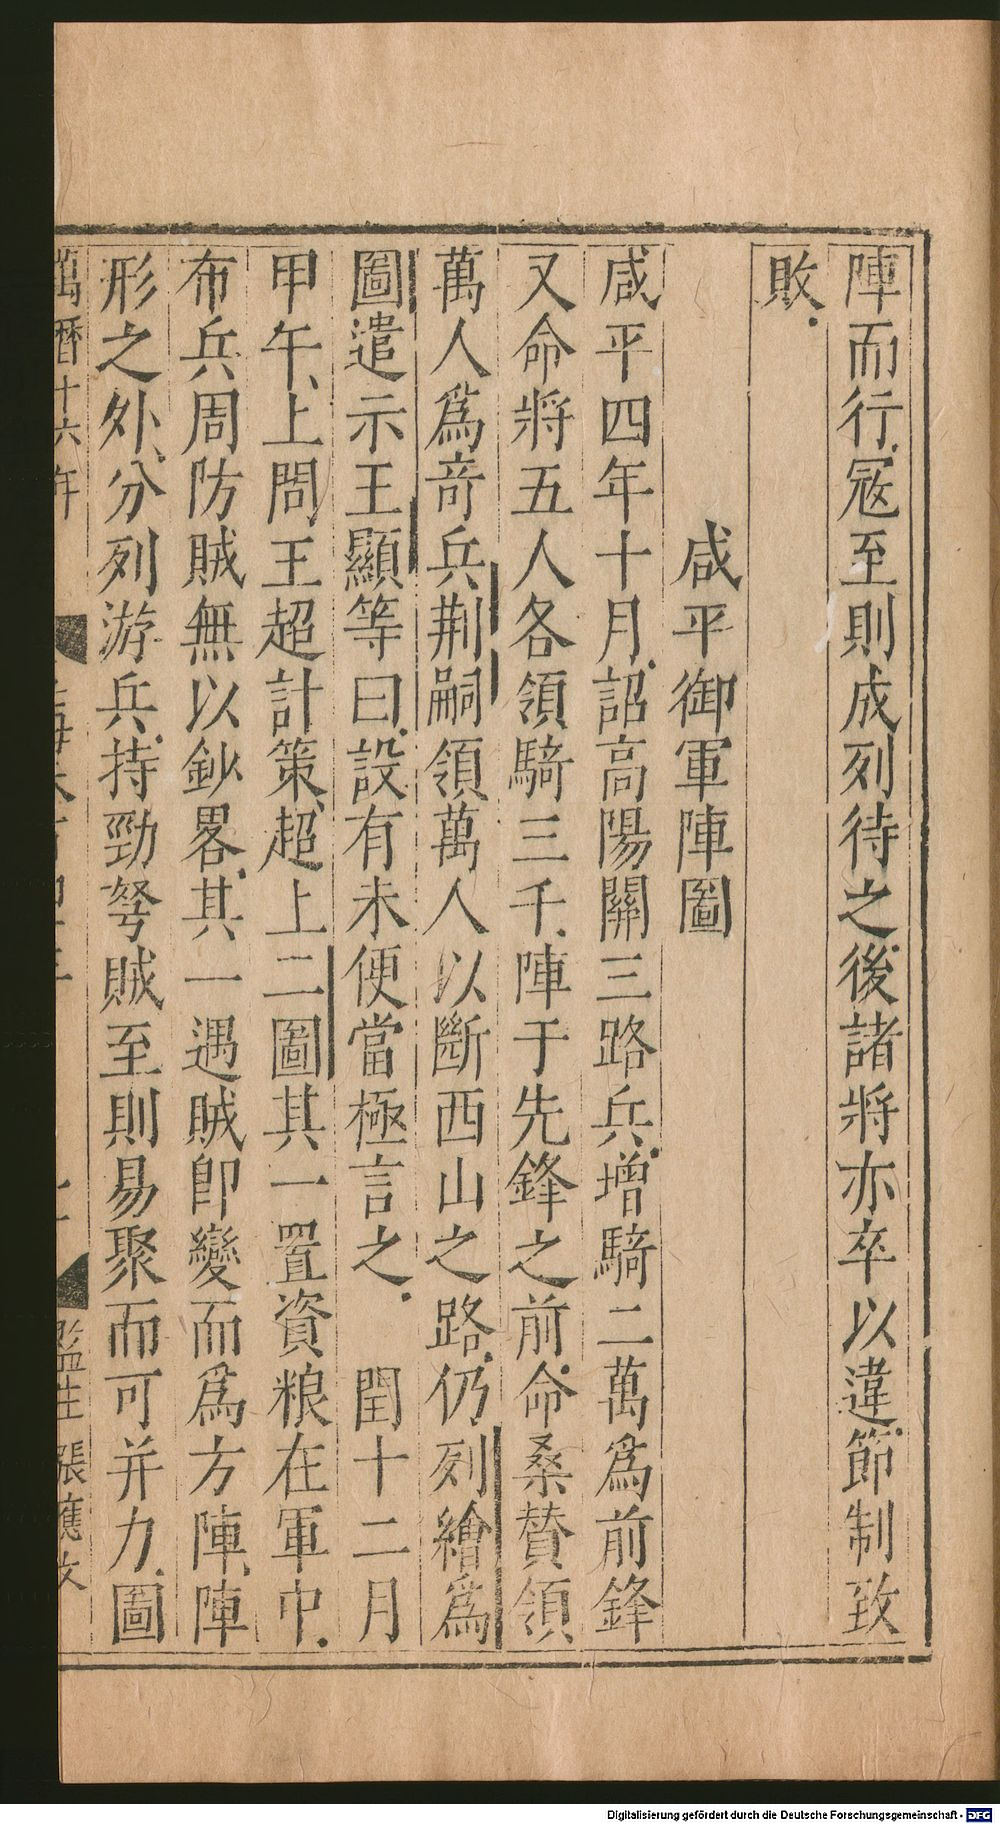 陣而行寇至則成列待之後諸將亦卒以違節制致
敗
咸平御軍陣圖
咸平四年十月詔高陽關三路兵增騎二萬為前鋒
又命將五人各領騎三千陣于先鋒之前命桑贊領
萬人爲奇兵荆嗣領萬人以斷西山之路仍列繪爲
圖遣示王顯等曰設有未便當極言之 閏十二月
甲午上問王超計策超上二圖其一置資粮在軍中
布兵周防賊無以鈔畧其一遇賊卽變而爲方陣陣
形之外分列游兵持勁弩賊至則易聚而可并力圖
萬曆十六年
監生張應文
Digitalisierung gefördert durch die Deutsche Forschungsgemeinschaft - DFG